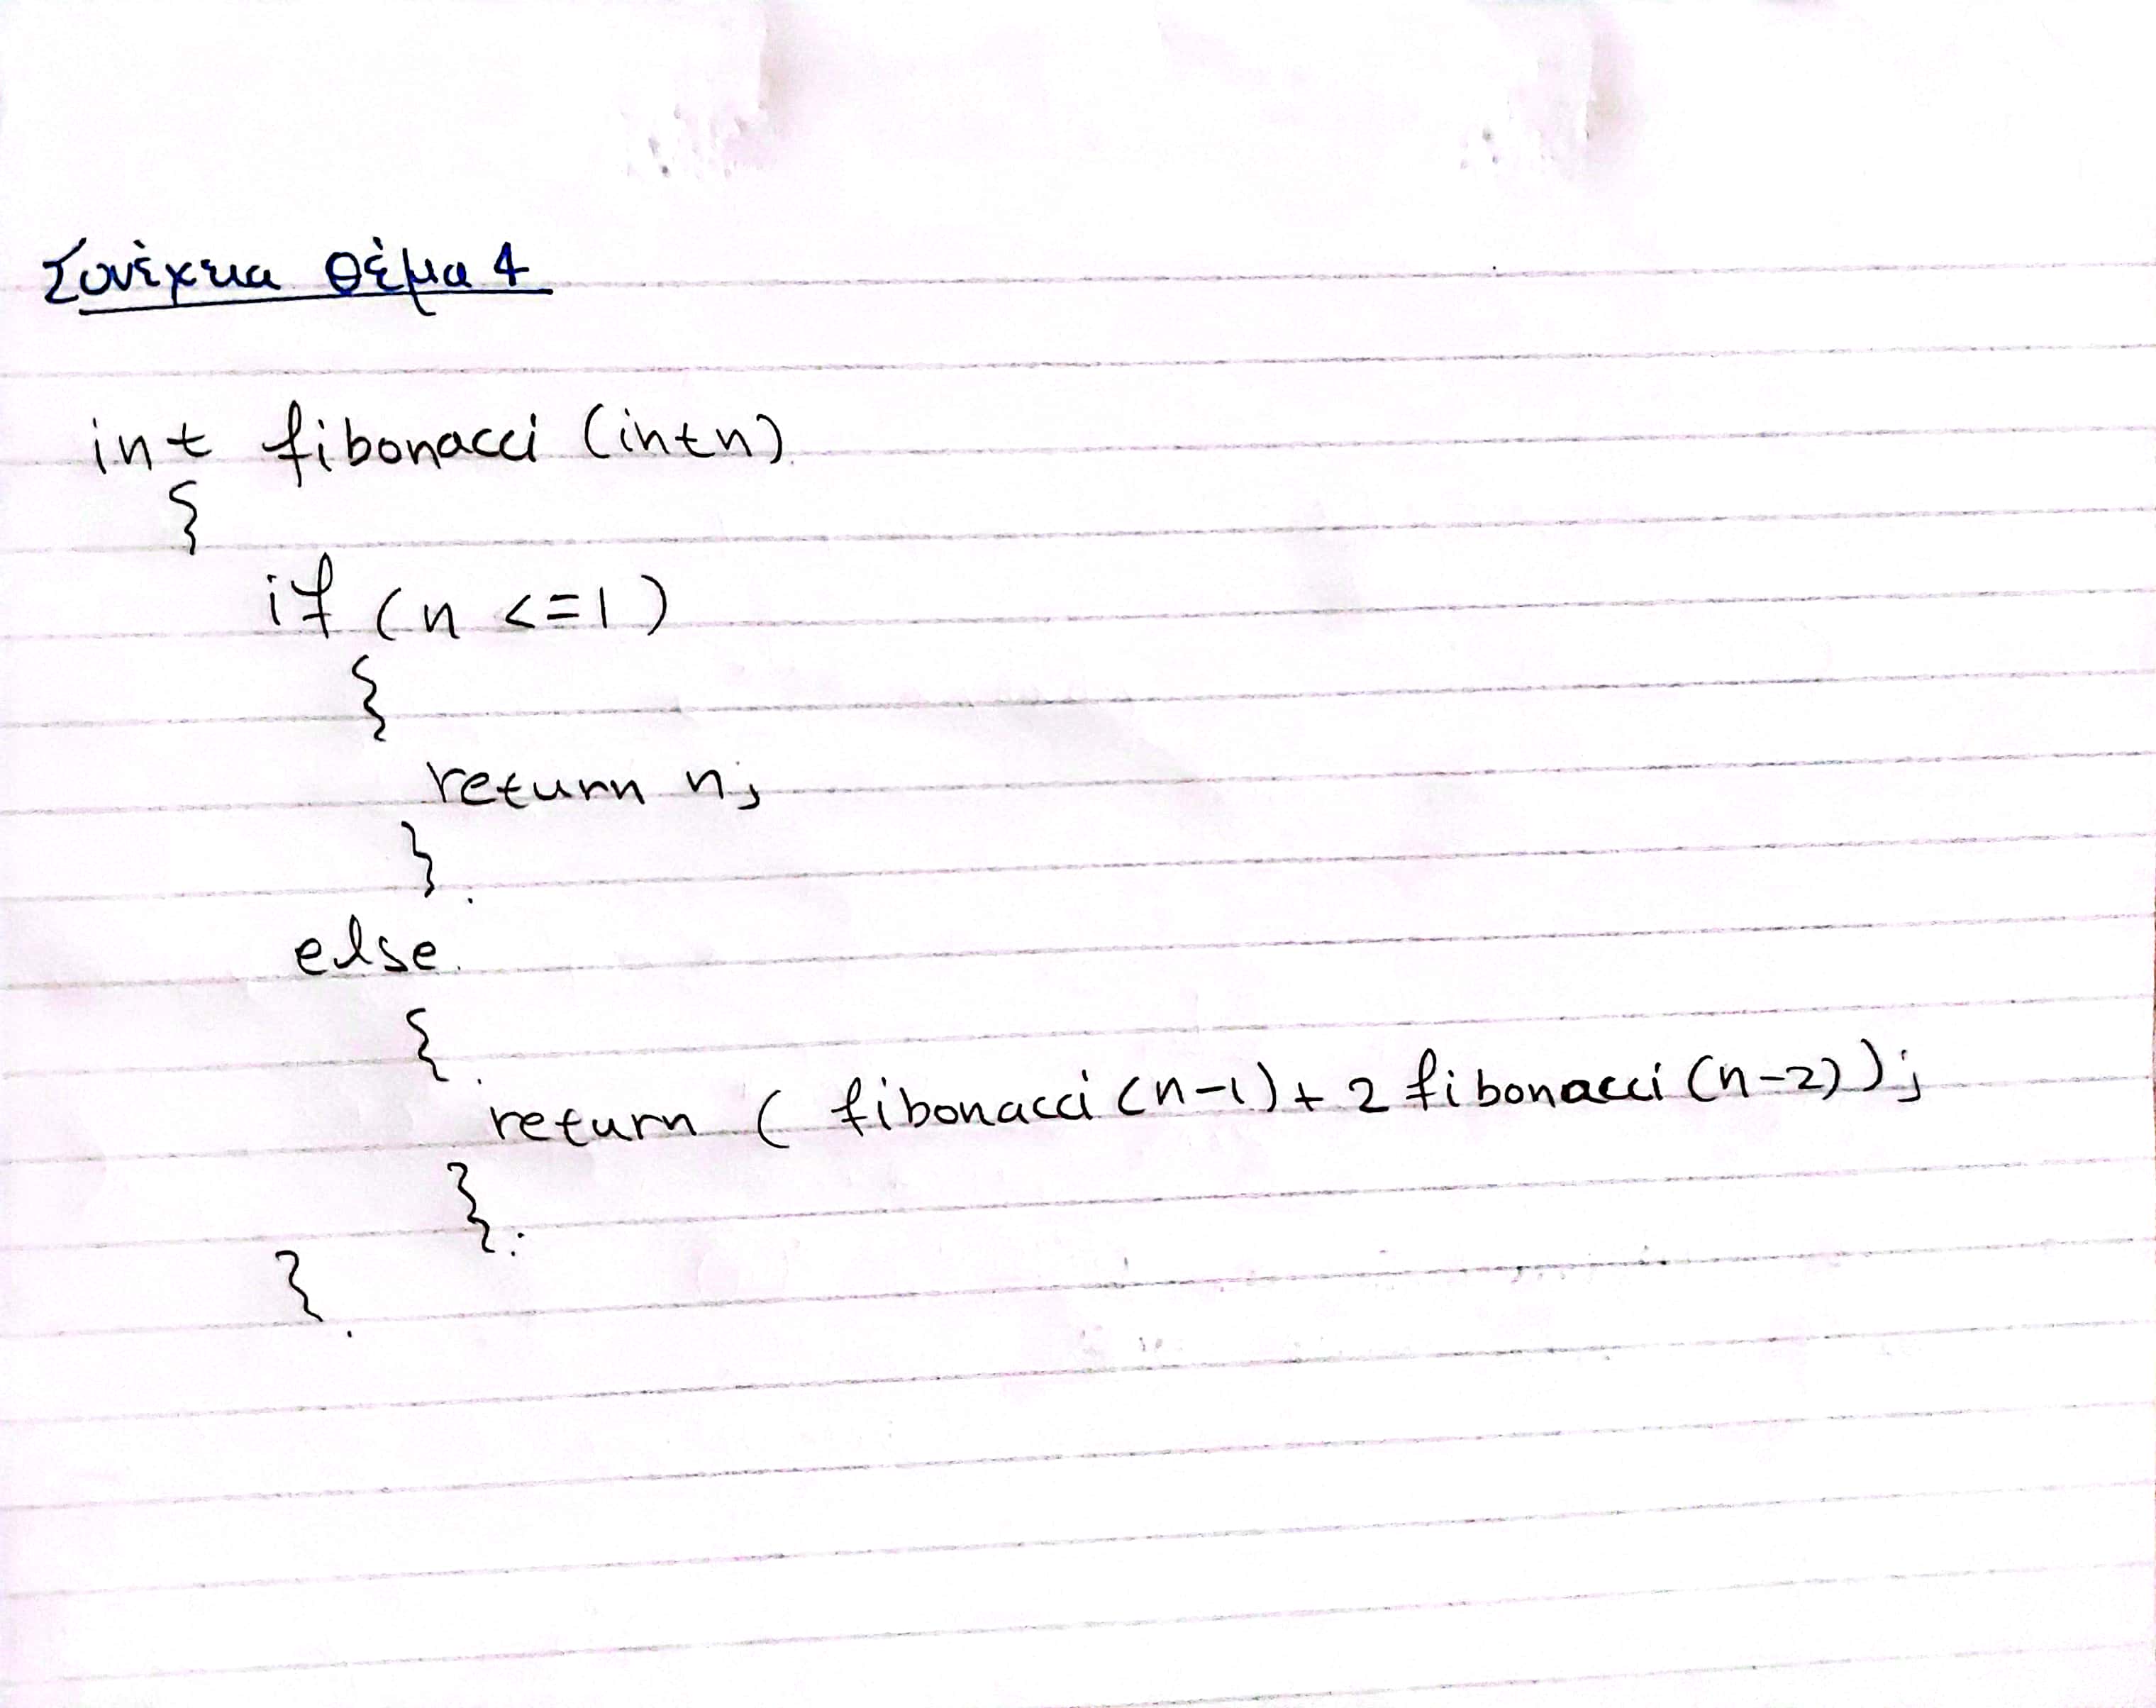 Συνέχεια Θέμα 4
int fibonacci (int n)
{
if (n <=1)
{
return n;
}
else
{
return ( fibonacci (n-1) + 2 fibonacci (n-2));
}
}